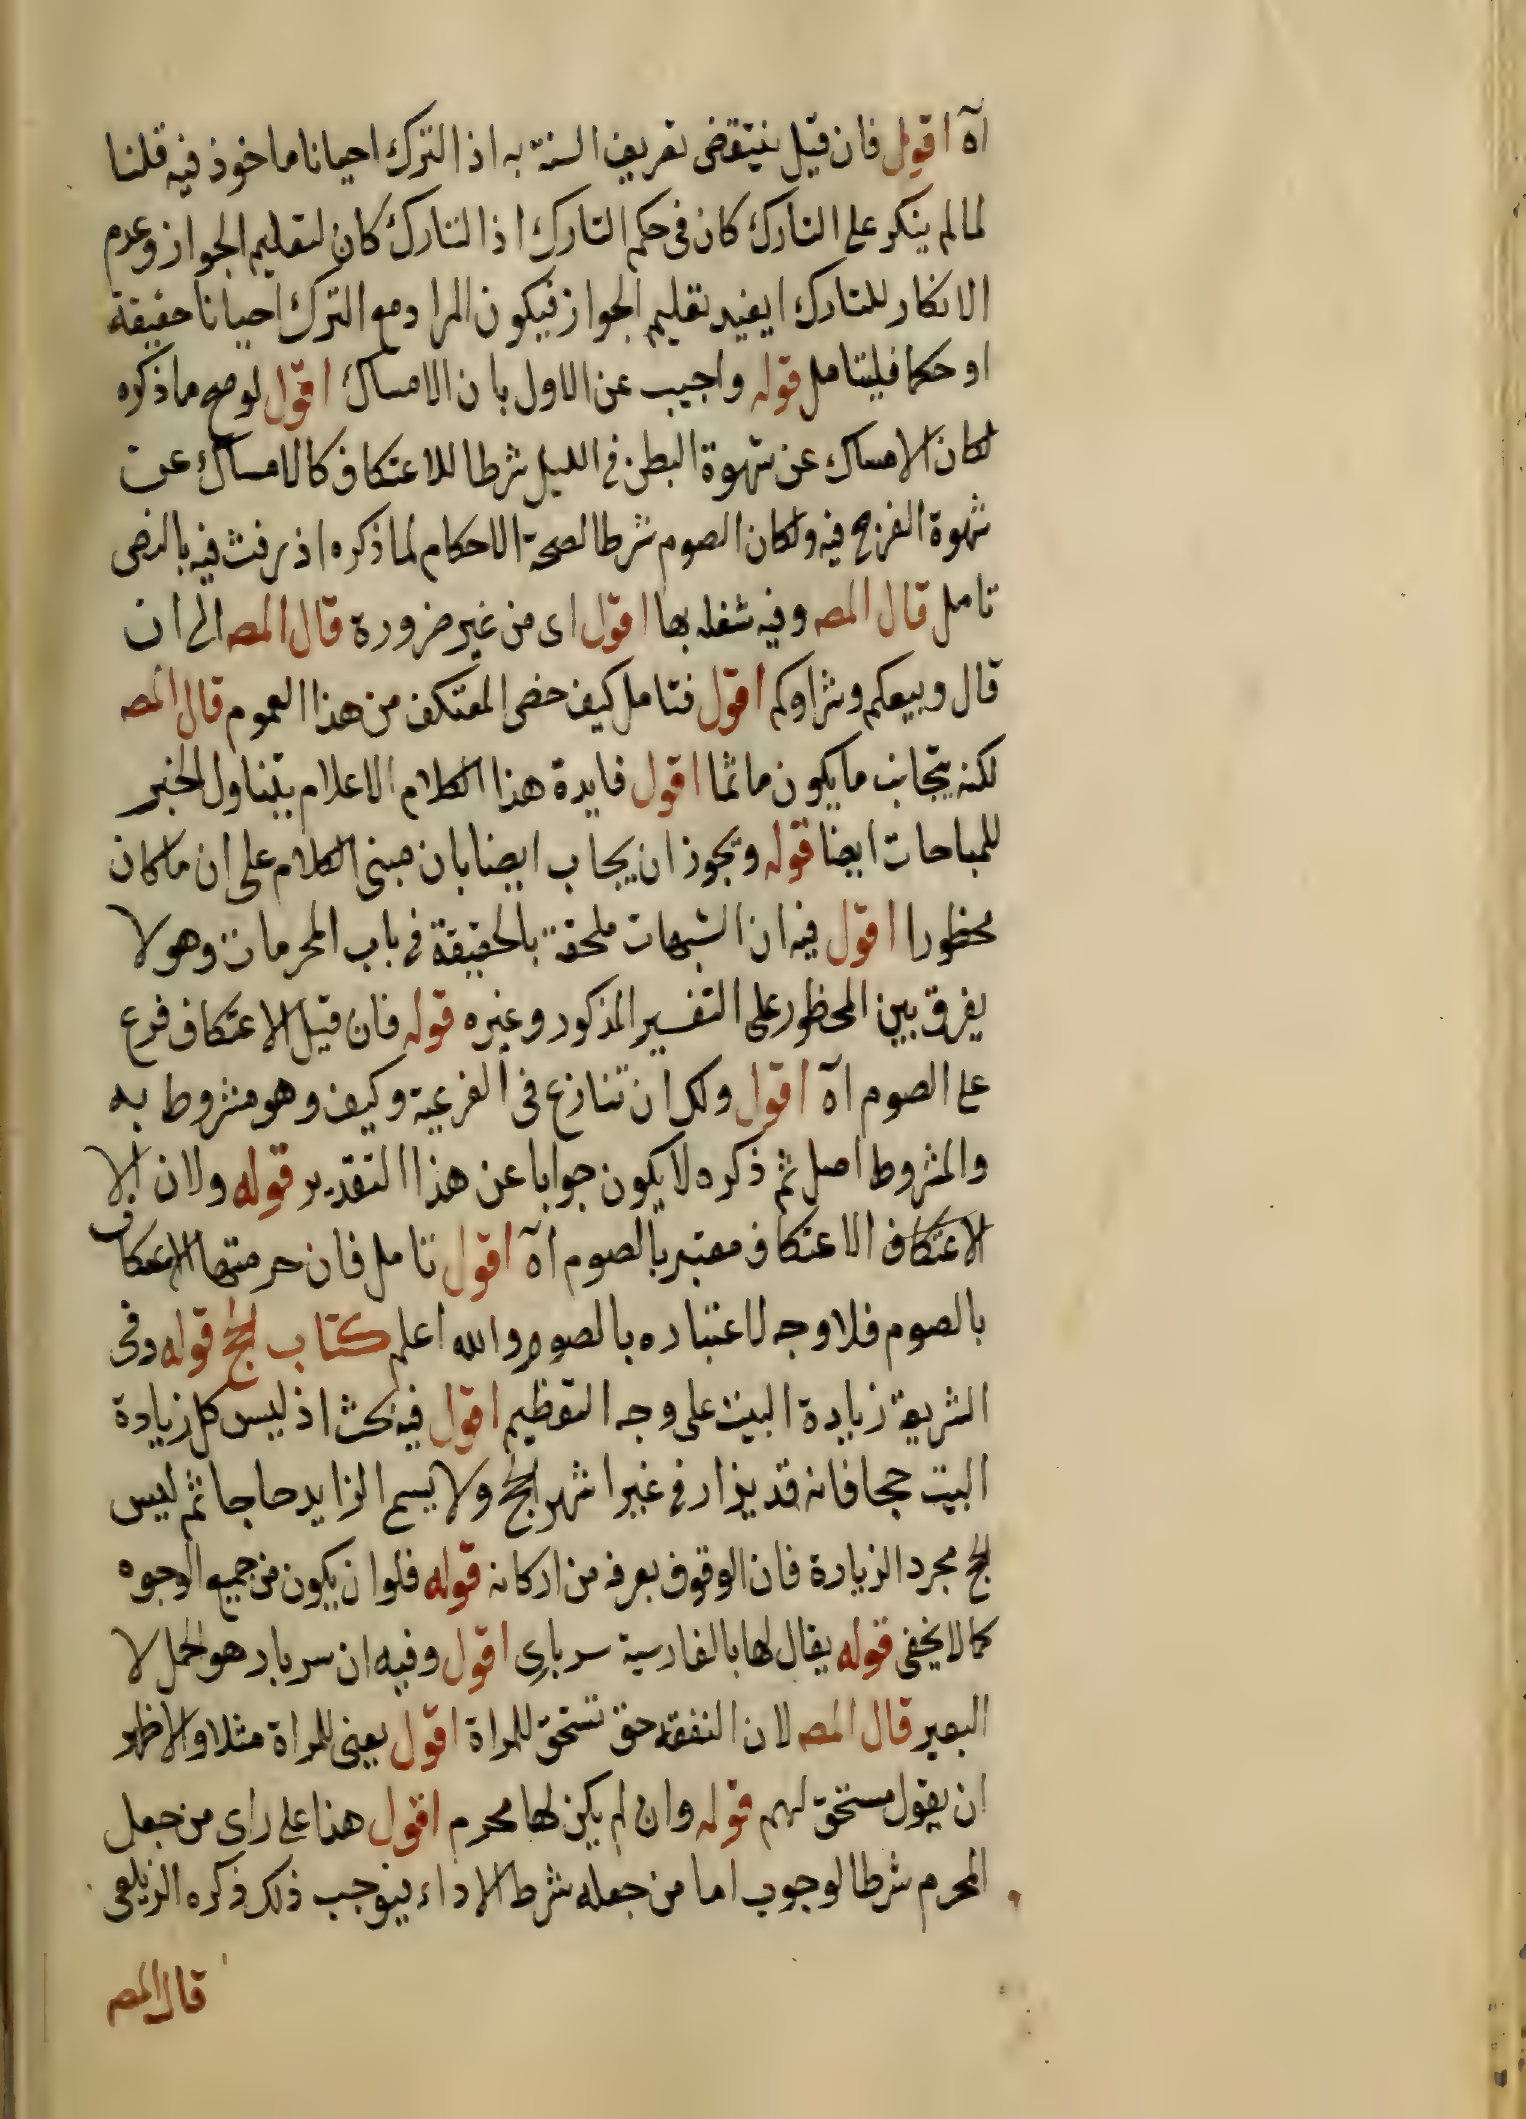 اه اقول فان قيل ينتقض تعريف السنة به اذ الترك احيانا ماخوذ فيه قلنا
لما لم ينكر على التارك كان فى حكم التارك اذ التارك كان لتعليم الجواز وعدم
الانكار للتارك ايفيد تعليم الجواز فيكون المراد مع الترك احيانا حقيقة
او حكما فليتامل قوله واجيب عن الاول بان الامساك اقول لو صح ما ذكره
لكان الامساك عن شهوة البطن فى الليل شرطا للاعتكاف كالامساك عن
شهوة الفرج فيه ولكان الصوم شرطا لصحة الاحكام لما ذكره اذ رفث فيه بالنص
تامل قال المصه وفيه شغله بها اقول اى من غير ضرورة قال المصه الى ان
قال وبيعكم وشراوكم اقول فتامل كيف خص المعتكف من هذا العموم قال المصه
لكنه يتجانب ما يكون ماثما اقول فايدة هذا الكلام الاعلام بتناول الخير
للمباحات ايضا قوله ويجوز ان يجاب ايضا بان مبنى الكلام على ان ما كان
محظورا اقول فيه ان الشبهات ملحقة بالحقيقة فى باب المحرمات وهو لا
يفرق بين المحظور على التفسير المذكور وغيره قوله فان قيل الاعتكاف فرع
على الصوم اه اقول ولك ان تنازع فى الفرعية وكيف وهو مشروط به
والمشروط اصل ثم ذكره لا يكون جوابا عن هذا التقدير قوله ولان الا
الاعتكاف الاعتكاف معتبر بالصوم اه اقول تامل فان حرمتها الاعتكاف
بالصوم فلا وجه لاعتباره بالصوم والله اعلم كتاب الحج قوله وفى
الشريعة زيادة البيت على وجه التعظيم اقول فيه بحث اذ ليس كل زيادة
البيت حجا فانه قد يزار فى غير اشهر الحج ولا يسمى الزايد حاجا ثم ليس
الحج مجرد الزيارة فان الوقوف بعرفه من اركانه قوله فلو ان يكون من جميع الوجوه
كما لا يخفى قوله يقال لها بالفارسية سربارى اقول وفيه ان سربار هو الحمل لا
البعير قال المصه لان النفقه حق تستحق للمراة اقول يعنى للمراة مثلا والاظهر
ان يقول مستحق لهم قوله وان لم يكن لها محرم اقول هذا على راى من جعل
المحرم شرطا لوجوب اما من جعله شرط الاداء فيوجب ذلك ذكره الزيلعى
قال المصه